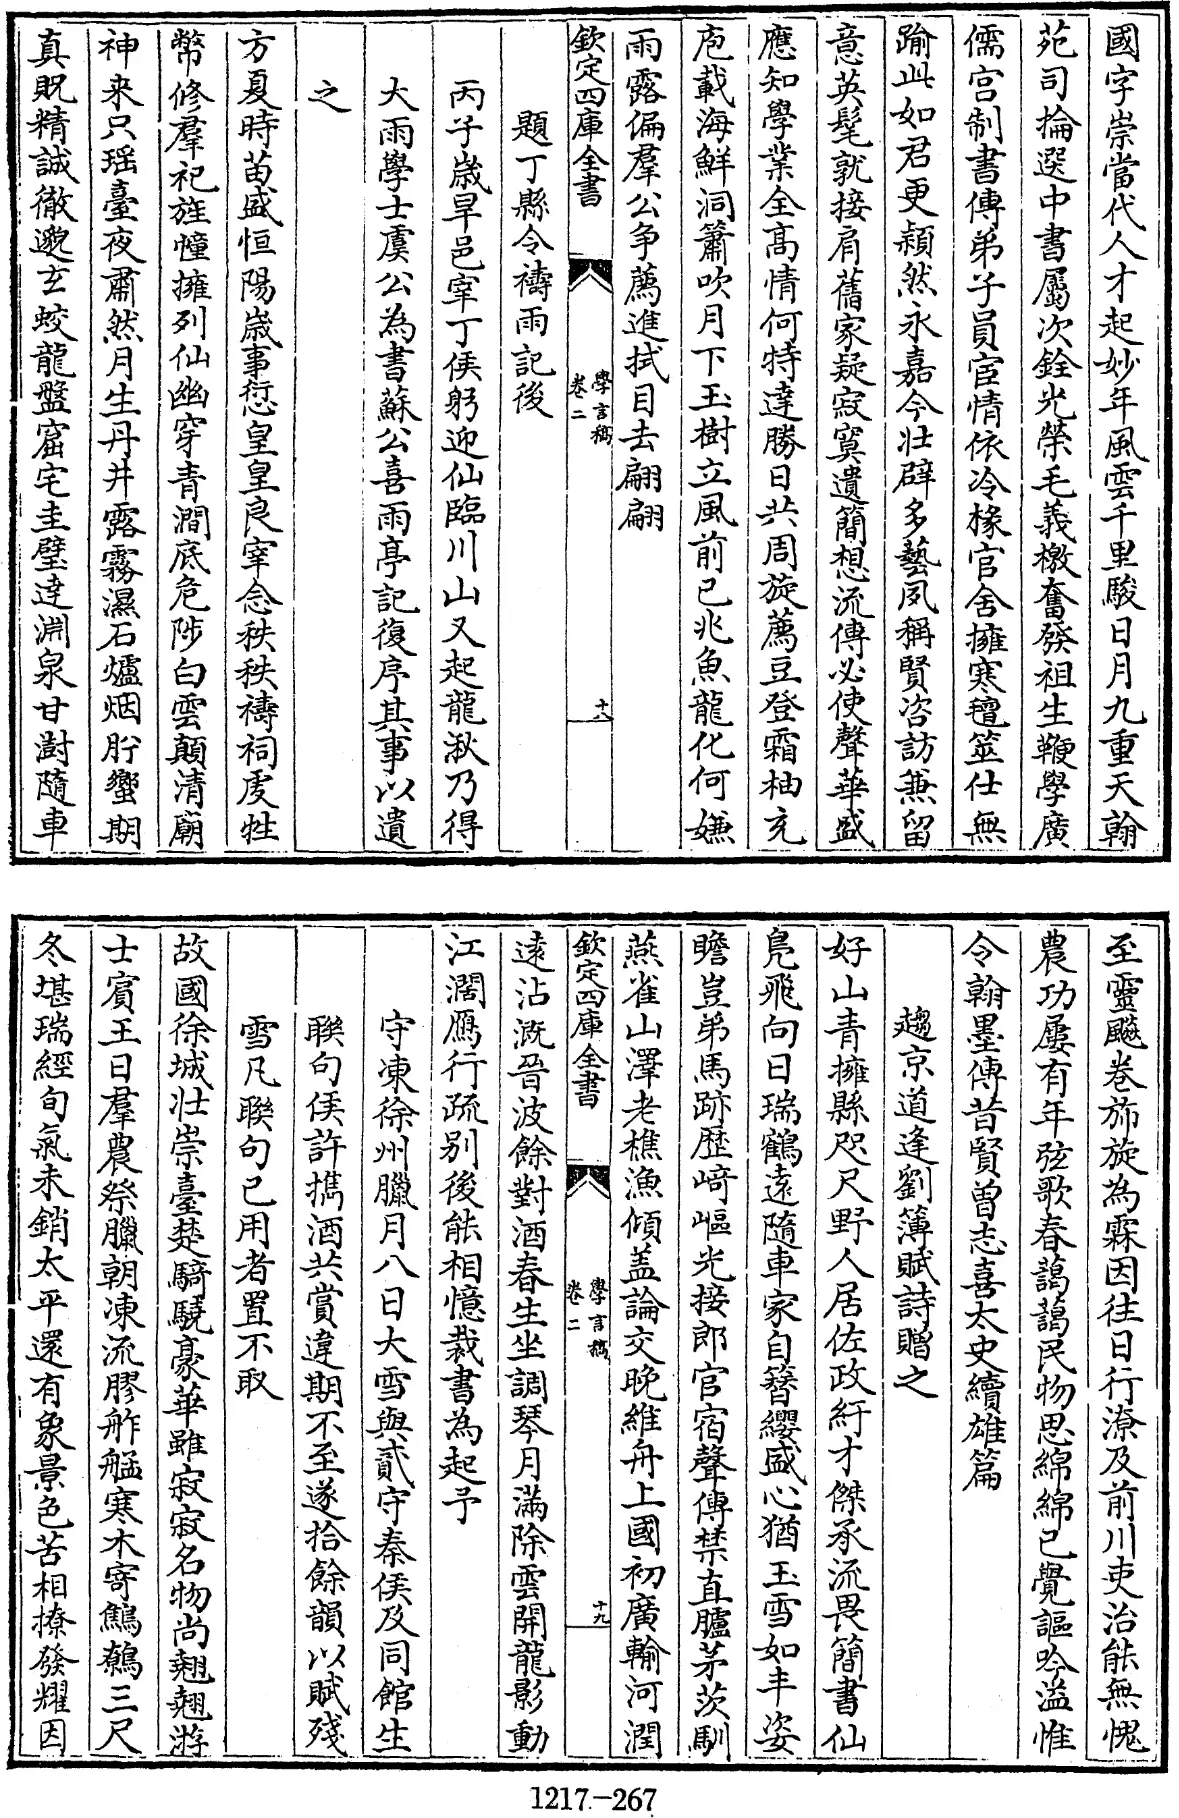 國字崇當代人才起妙年風雲千里駿日月九重天翰
苑司掄選中書屬次銓光榮毛義檄奮發祖生鞭學廣
儒宫制書傳弟子員宦情依冷椽官舍擁寒氊筮仕無
踰此如君更穎然永嘉今壯辟多藝夙稱賢咨訪兼留
意英髦就接肩舊家疑寂寞遺簡想流傳必使聲華盛
應知學業全髙情何特達勝日共周旋薦豆登霜柚充
庖載海鮮洞簫吹月下玉樹立風前已兆魚龍化何嫌
雨露偏羣公争薦進拭目去翩翩
欽定四庫全書
學言稿
卷二
十八
題丁縣令禱雨記後
丙子歳旱邑宰丁侯躬迎仙臨川山又起龍湫乃得
大雨學士虞公為書蘇公喜雨亭記復序其事以遺
之
方夏時苗盛恒陽歳事愆皇皇良宰念秩秩禱祠虔牲
幣修羣祀旌幢擁列仙幽穿青澗底危陟白雲顛清廟
神来只瑶臺夜肅然月生丹井露霧濕石爐烟肸蠁期
真貺精誠徹邈玄蛟龍盤窟宅圭璧逹淵泉甘澍隨車
至靈飈卷斾旋為霖因往日行潦及前川吏治能無愧
農功屢有年弦歌春藹藹民物思綿綿已覺謳吟溢惟
令翰墨傳昔賢曽志喜太史續雄篇
趨京道逢劉簿賦詩贈之
好山青擁縣咫尺野人居佐政紆才傑承流畏簡書仙
鳬飛向日瑞鶴遠隨車家自簪纓盛心猶玉雪如丰姿
瞻豈弟馬跡歴﨑嶇光接郎官宿聲傳禁直臚茅茨馴
燕雀山澤老樵漁傾盖論交晚維舟上國初廣輸河潤
欽定四庫全書
學言稿
卷二
十九
遠沾溉晉波餘對酒春生坐調琴月滿除雲開龍影動
江濶鴈行疏别後能相憶裁書為起予
守凍徐州臘月八日大雪與貳守秦侯及同館生
聯句侯許擕酒共賞違期不至遂拾餘韻以賦殘
雪凡聯句已用者置不取
故國徐城壯崇臺楚騎驍豪華雖寂寂名物尚翹翹游
士賓王日羣農祭臘朝凍流膠舴艋寒木寄鷦鷯三尺
冬堪瑞經旬氣未銷太平還有象景色苦相撩發耀因
1217-267